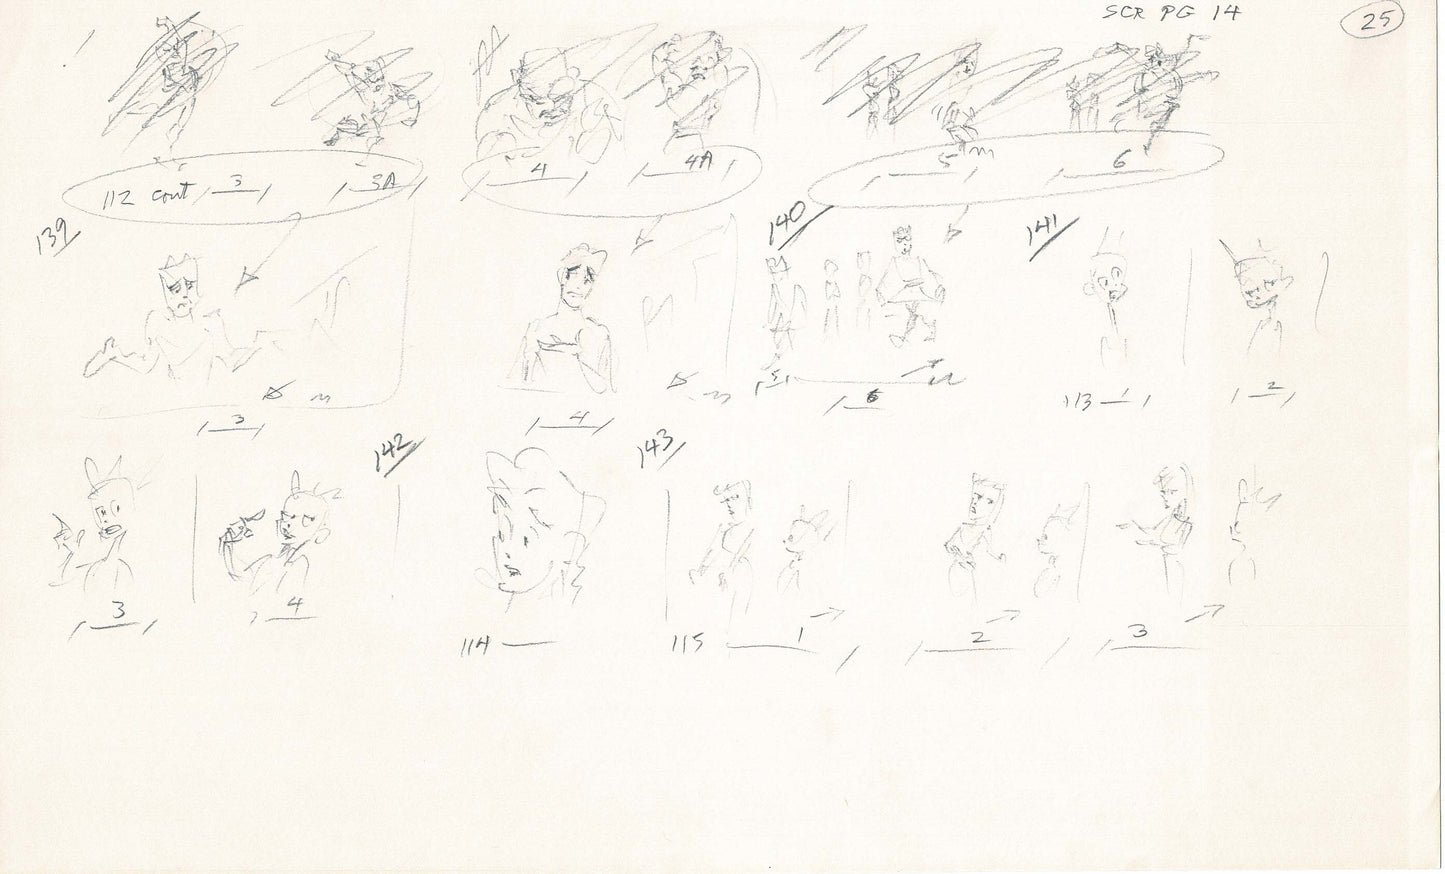 SCR PG 14
25
112 cont 3 3A 4 4A 5 6
139 140 141
3 4 5 6 113 1 2
142 143
3 4 114 115 1 2 3